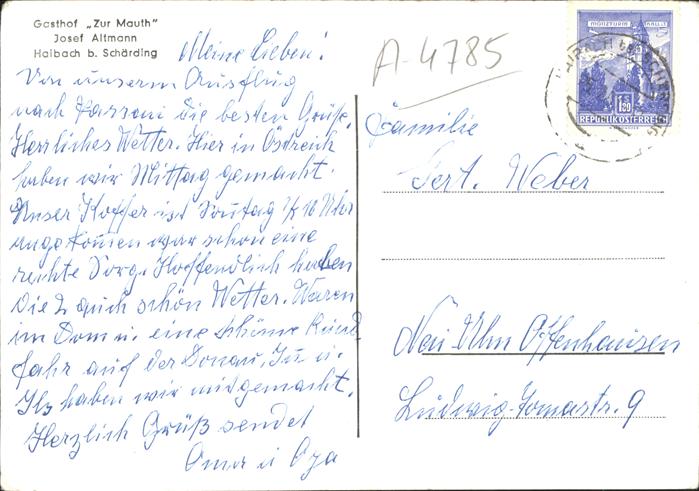 Gasthof „Zur Mauth"
Josef Altmann
Haibach b. Schärding
Meine Lieben!
Von unserm Ausflug
nach Passau die besten Grüße.
Herrliches Wetter. Hier in Östreich
haben wir Mittag gemacht.
Unser Koffer ist Sontag 1/2 10 Uhr
angekommen war schon eine
rechte Sorge. Hoffendlich haben
die 2 auch schön Wetter. Waren
im Dom u. eine schöne Rund
fahr auf der Donau, In u.
Ilz haben wir mitgemacht.
Herzlich Grüß sendet
Oma u Opa
A-4785
Familie
Gert. Weber
Neu Ulm Offenhausen
Ludwig-Tomastr. 9
MÜNZTURM HALL I.T.
1.80
REPUBLIK ÖSTERREICH
HAIBACH bei SCHÄRDING